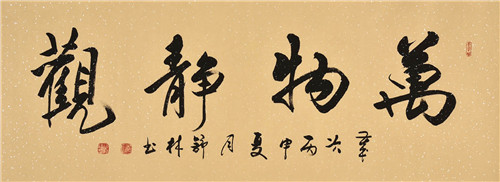 萬物靜觀
歲次丙申夏月林书